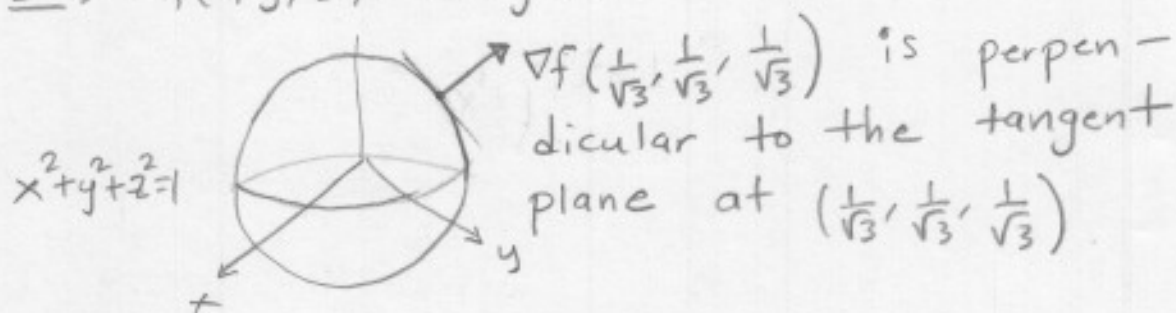 ∇f(1/√3, 1/√3, 1/√3) is perpen-
dicular to the tangent
plane at (1/√3, 1/√3, 1/√3)
x²+y²+z²=1
x
y